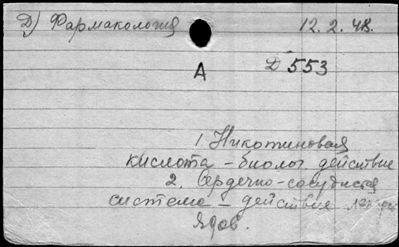 Д) Фармакология 12.2.48.
А Д 553
1. Никотиновая
кислота - биолог действие
2. Сердечно-сосудистая
система - действие
ядов.